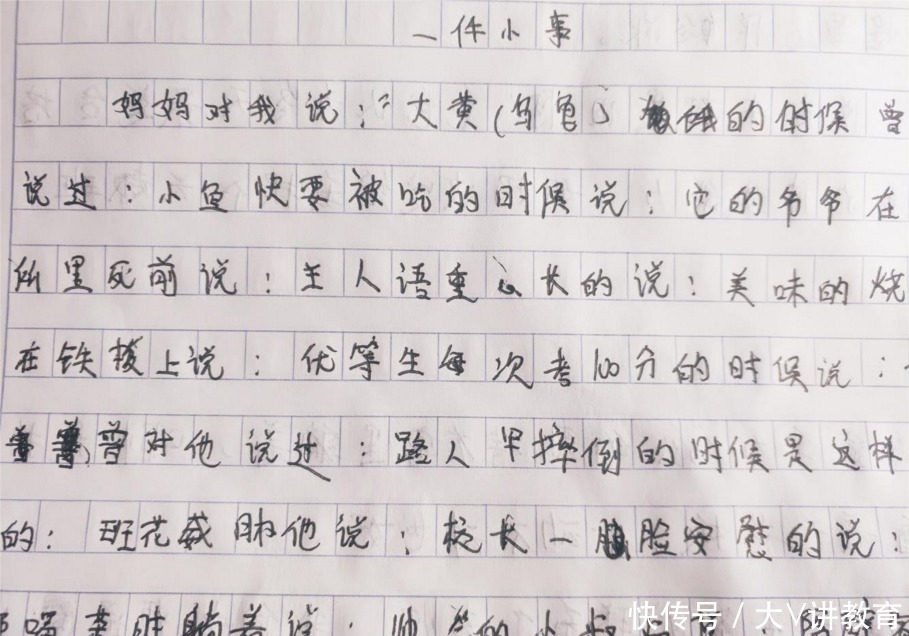 一件小事
妈妈对我说:“大黄(乌龟)饿的时候曾
说过:小鱼快要被吃的时候说:它的爷爷在
里死前说:主人语重心长的说:美味的烧
在铁板上说:优等生每次考100分的时候说:
曾对他说过:路人甲摔倒的时候是这样
的:班花威胁他说:校长一脸安慰的说:
着说:
快传号/大V讲教育